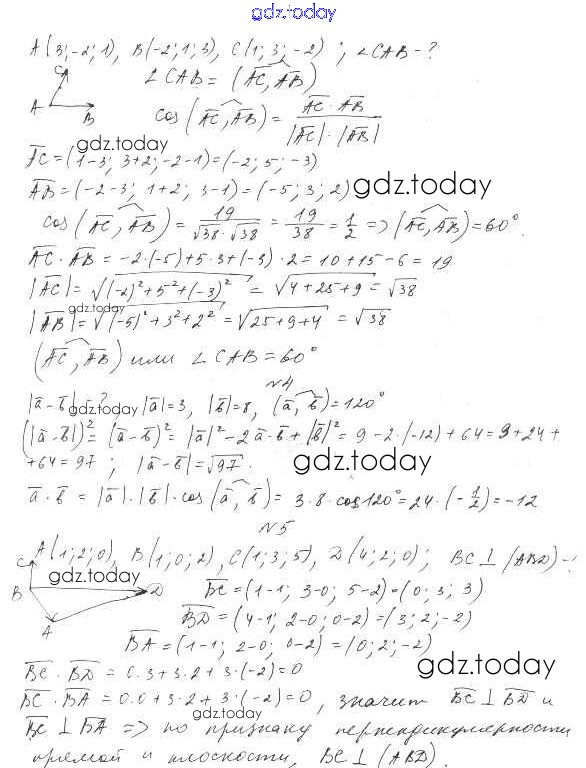 gdz.today
A(3;-2;1), B(-2;1;3), C(1;3;-2); ∠CAB-?
C
A
B
∠CAB = (AC, AB)
cos(AC, AB) = AC·AB / |AC|·|AB|
gdz.today
AC = (1-3; 3+2; -2-1) = (-2; 5; -3)
AB = (-2-3; 1+2; 3-1) = (-5; 3; 2)
gdz.today
cos(AC, AB) = 19/√38·√38 = 19/38 = 1/2 => (AC, AB) = 60°.
AC·AB = -2·(-5)+5·3+(-3)·2 = 10+15-6 = 19
|AC| = √(-2)²+5²+(-3)² = √4+25+9 = √38
gdz.today
|AB| = √(-5)²+3²+2² = √25+9+4 = √38
(AC, AB) или ∠CAB = 60°
№4
|a-b| - ?, |a|=3, |b|=8, (a, b)=120°
gdz.today
(|a-b|)² = (a-b)² = |a|² - 2a·b + |b|² = 9-2·(-12)+64 = 9+24+
+64 = 97; |a-b| = √97.
gdz.today
a·b = |a|·|b|·cos(a, b) = 3·8·cos120° = 24·(-1/2) = -12
№5
A(1;2;0), B(1;0;2), C(1;3;5), D(4;2;0); BC⊥(ABD)-?
C
gdz.today
B
D
A
BC = (1-1; 3-0; 5-2) = (0; 3; 3)
BD = (4-1; 2-0; 0-2) = (3; 2; -2)
BA = (1-1; 2-0; 0-2) = (0; 2; -2)
BC·BD = 0·3+3·2+3·(-2)=0
gdz.today
BC·BA = 0·0+3·2+3·(-2)=0, значит BC⊥BD и
gdz.today
BC⊥BA => по признаку перпендикулярности
прямой и плоскости, BC⊥(ABD).